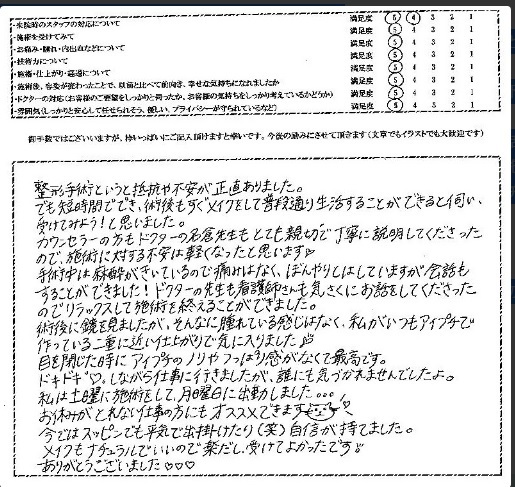 ・来院時のスタッフの対応について 満足度 5 4 3 2 1
・施術を受けてみて 満足度 5 4 3 2 1
・お痛み・腫れ・内出血などについて 満足度 5 4 3 2 1
・技術力について 満足度 5 4 3 2 1
・施術・仕上がり・経過について 満足度 5 4 3 2 1
・施術後、容姿が変わったことで、以前と比べて前向き、幸せな気持ちになれましたか 満足度 5 4 3 2 1
・ドクターの対応(お客様のご要望をしっかりと伺ったか、お客様の気持ちをしっかり考えているかどうか) 満足度 5 4 3 2 1
・雰囲気(しっかりと安心して任せられそう、優しい、プライバシーが守られているなど) 満足度 5 4 3 2 1
御手数ではございますが、枠いっぱいにご記入頂けますと幸いです。今後の励みにさせて頂きます(文章でもイラストでも大歓迎です)
整形手術というと抵抗や不安が正直ありました。
でも短時間でで、術後もすぐメイクをして普段通り生活することができると伺い、
受けてみよう!と思いました。
カウンセラーの方もドクターの名倉先生もとても親切で丁寧に説明してくださった
ので、施術に対する不安は軽くなったと思います♡
手術中は麻酔がきいているので痛みはなく、ぼんやりとはしていますが会話も
することができました!ドクターの先生も看護師さんも気さくにお話をしてくださった
のでリラックスして施術を終えることができました。
術後に鏡を見ましたが、そんなに腫れている感じはなく、私がいつもアイプチで
作っている二重に近い仕上がりで気に入りました
目を閉じた時にアイプチのノリやつっぱり感がなくて最高です。
ドキドキ♡しながら仕事に行きましたが、誰にも気づかれませんでしたよ。
私は土曜に施術をして、月曜日に出勤しました...
お休みがとれない仕事の方にもオススメできます
今ではスッピンでも平気で出掛けたり(笑)自信が持てました。
メイクもナチュラルでいいので楽だし、受けてよかったです
ありがとうございました♡♡♡